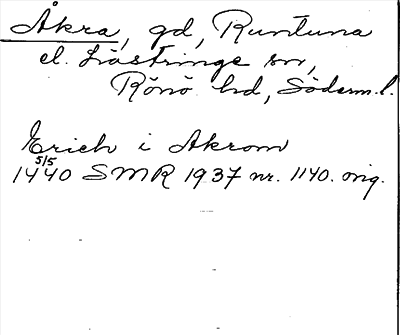 Åkra, gd, Runtuna
el. Lästringe sn,
Rönö hd, Söderm.l.
Erich i Akrom
5/5
1440 SMR 1937 nr. 1140. orig.